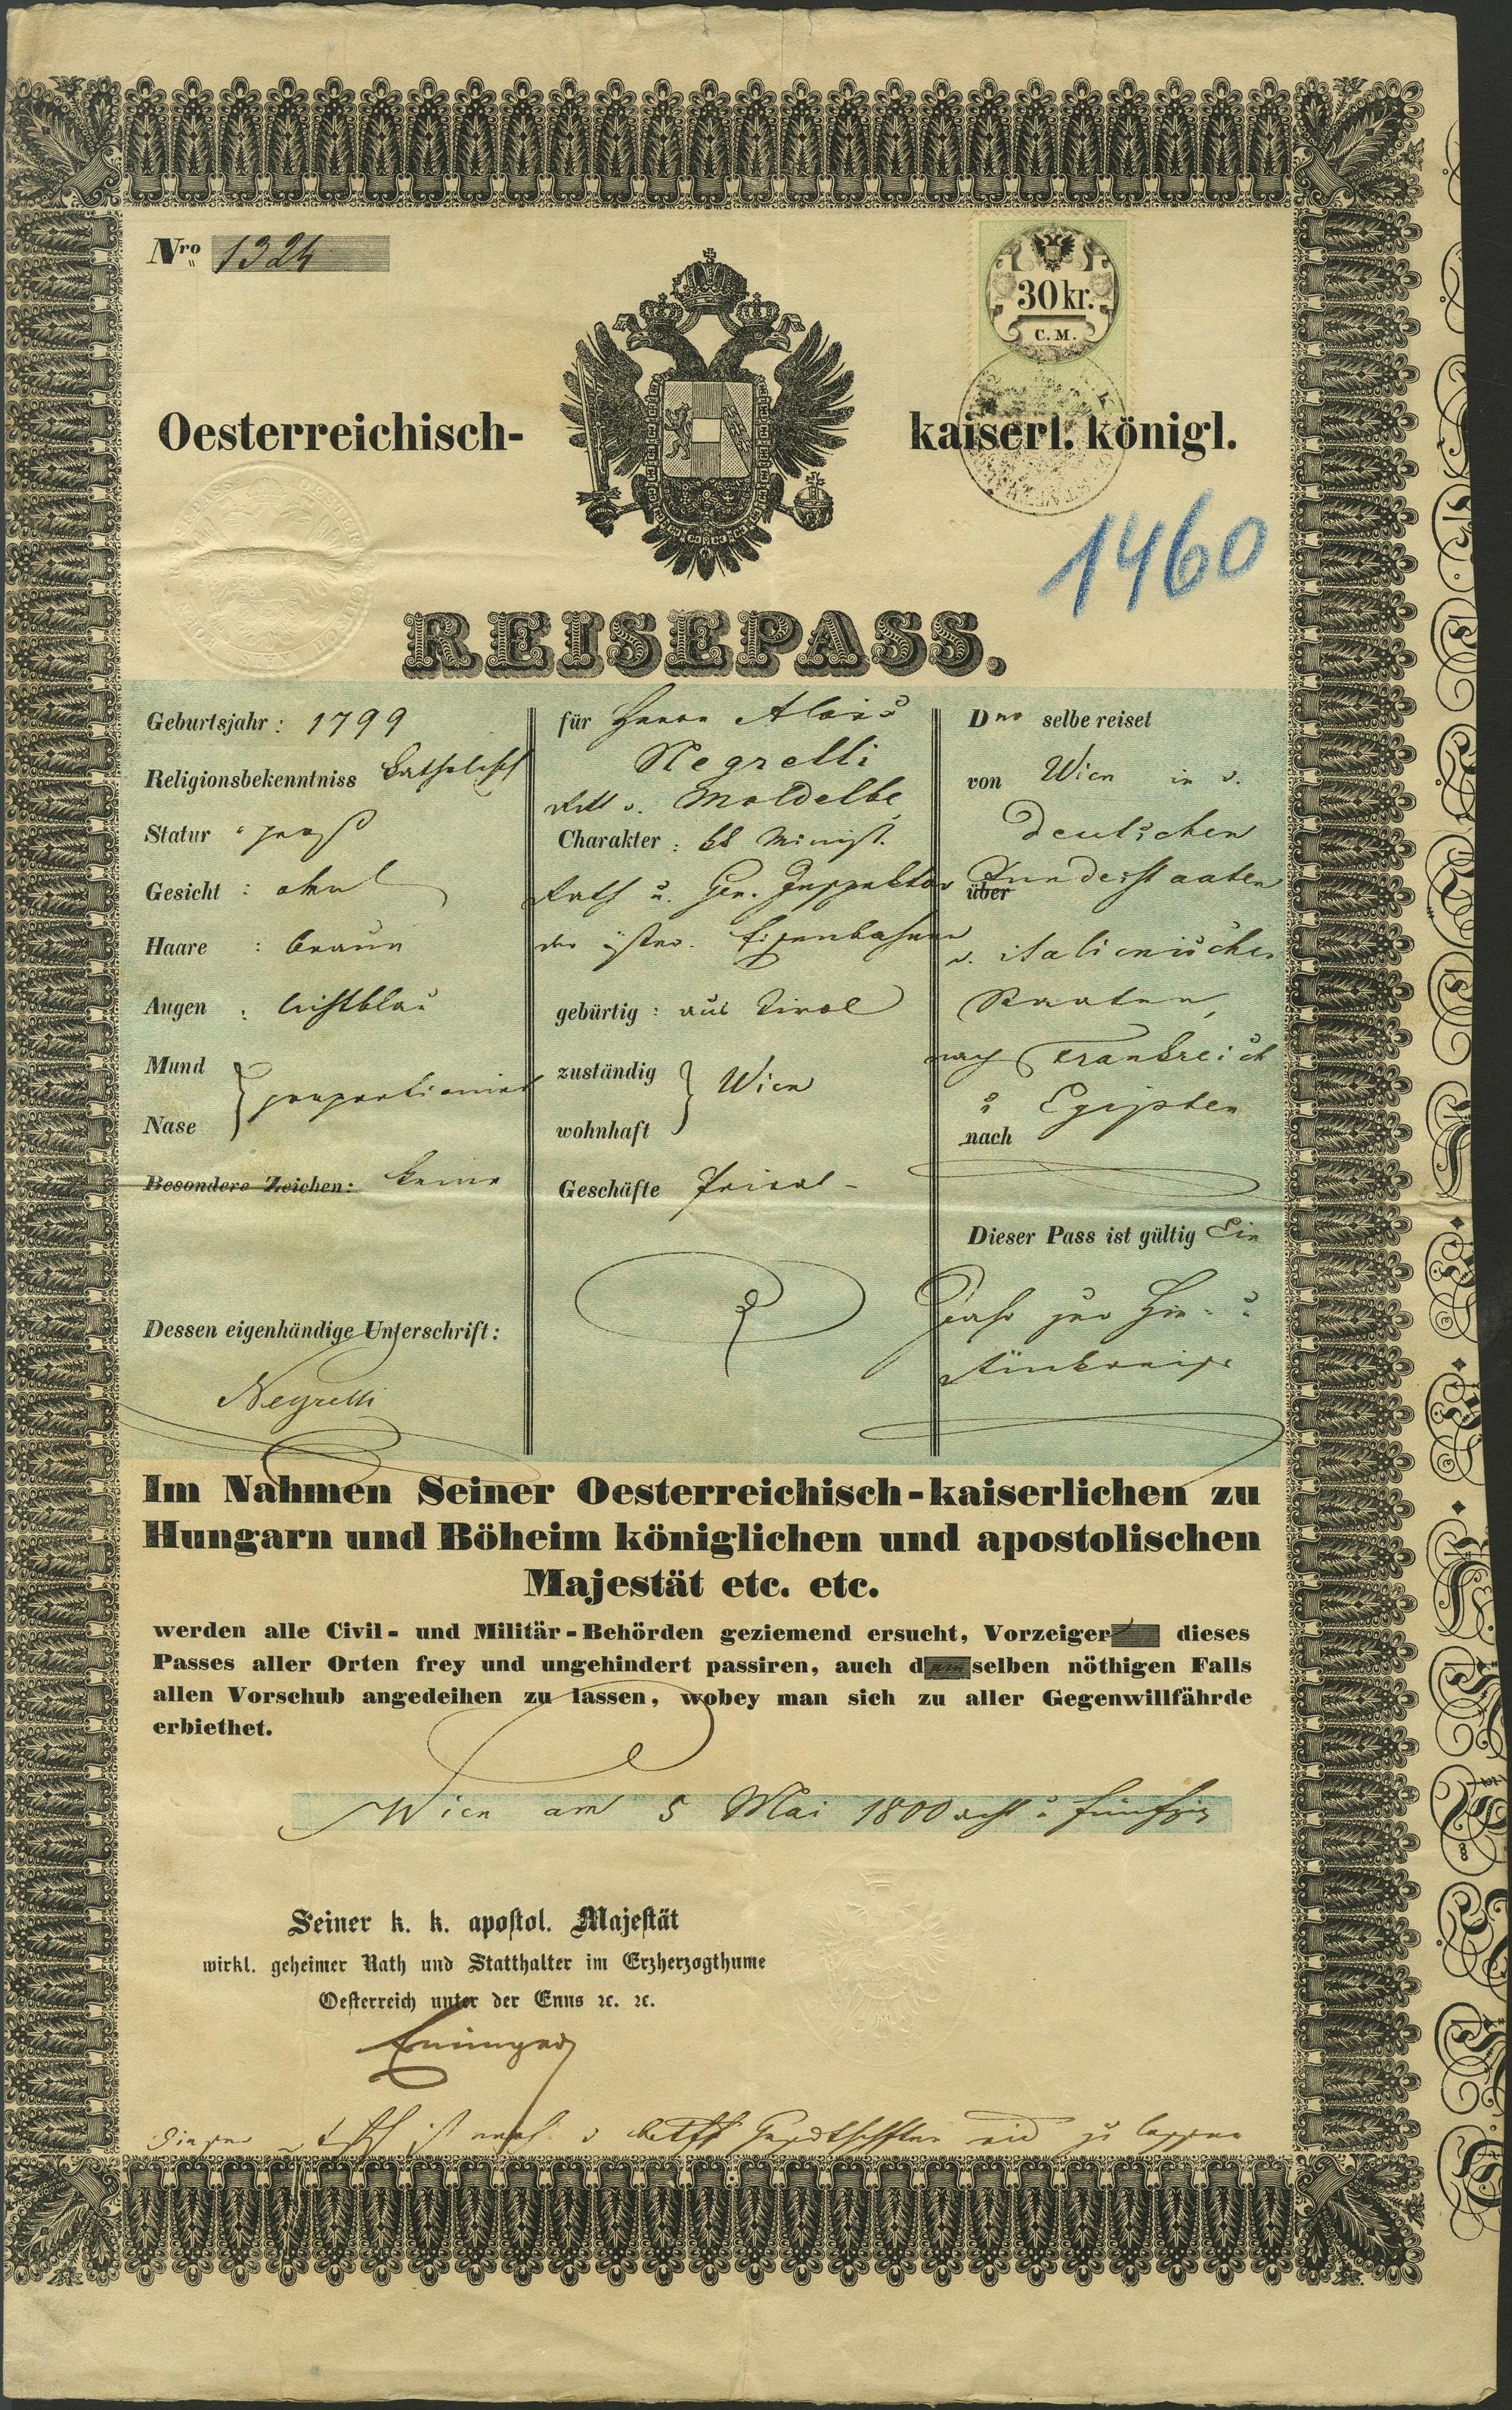 Nro 1324
30 kr.
C. M.
Oesterreichisch-
kaiserl. königl.
1460
REISEPASS.
Geburtsjahr: 1799
Religionsbekenntniss katholisch
Statur : groß
Gesicht : oval
Haare : braun
Augen : lichtblau
Mund
Nase } proportionirt
Besondere Zeichen: keine
Dessen eigenhändige Unterschrift:
Negrelli
für Herrn Alois
Negrelli
Ritt v. Moldelbe
Charakter : kk Minist.
Rath u. Gen. Inspektor
der österr. Eisenbahnen
gebürtig : aus Tirol
zuständig
wohnhaft } Wien
Geschäfte Privat-
Der selbe reiset
von Wien in d.
deutschen
über Bundesstaaten
u. italienische
Staaten,
nach Frankreich
u Egipten
nach
Dieser Pass ist gültig Ein
Jahr zur Hin- u
Rückreise
Im Nahmen Seiner Oesterreichisch-kaiserlichen zu
Hungarn und Böheim königlichen und apostolischen
Majestät etc. etc.
werden alle Civil- und Militär-Behörden geziemend ersucht, Vorzeiger dieses
Passes aller Orten frey und ungehindert passiren, auch demselben nöthigen Falls
allen Vorschub angedeihen zu lassen, wobey man sich zu aller Gegenwillfährde
erbiethet.
Wien am 5 Mai 1800 acht u fünfzig
Seiner k. k. apostol. Majestät
wirkl. geheimer Rath und Statthalter im Erzherzogthume
Oesterreich unter der Enns ꝛc. ꝛc.
zu lassen